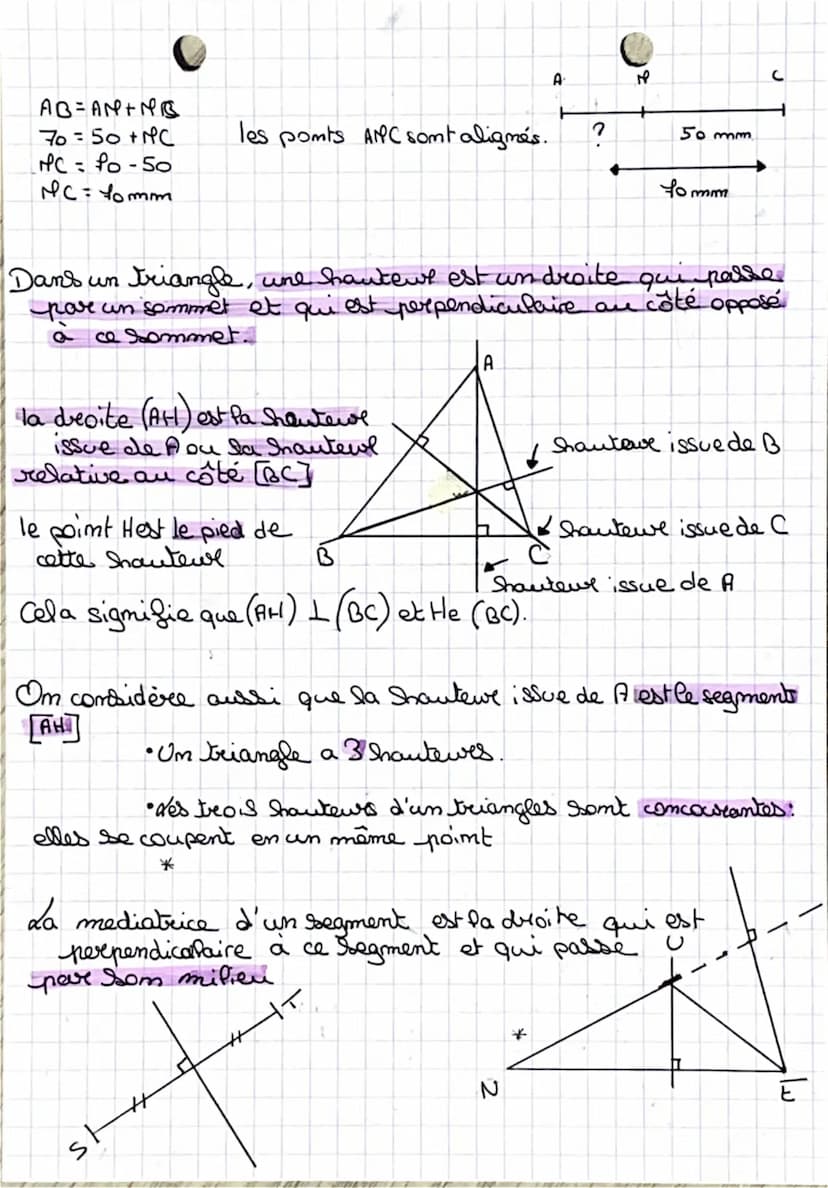 A M C
AB = AM + MB
70 = 50 + MC
MC = 70 - 50
MC = 70 mm
les points AMC sont alignés.
? 50 mm
70 mm
Dans un triangle, une hauteur est un droite qui passe
par un sommet et qui est perpendiculaire au côté opposé
à ce sommet.
A
la droite (AH) est la hauteur
issue de A ou la hauteur
relative au côté [BC]
hauteur issue de B
le point H est le pied de
cette hauteur
hauteur issue de C
B C
hauteur issue de A
Cela signifie que (AH) ⊥ (BC) et H ∈ (BC).
On considère aussi que la hauteur issue de A est le segments
[AH]
• Un triangle a 3 hauteurs.
• Les trois hauteurs d'un triangles sont concourantes:
elles se coupent en un même point
*
La mediatrice d'un segment est la droite qui est
perpendiculaire à ce segment et qui passe
par son milieu
U
T
*
N E
S